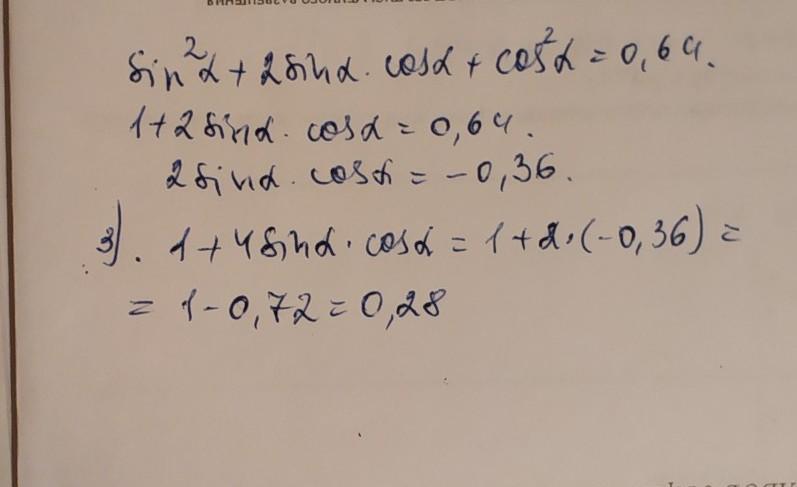 sin²α + 2sinα · cosα + cos²α = 0,64.
1 + 2sinα · cosα = 0,64.
2sinα · cosα = -0,36.
3). 1 + 4sinα · cosα = 1 + 2 · (-0,36) =
= 1 - 0,72 = 0,28